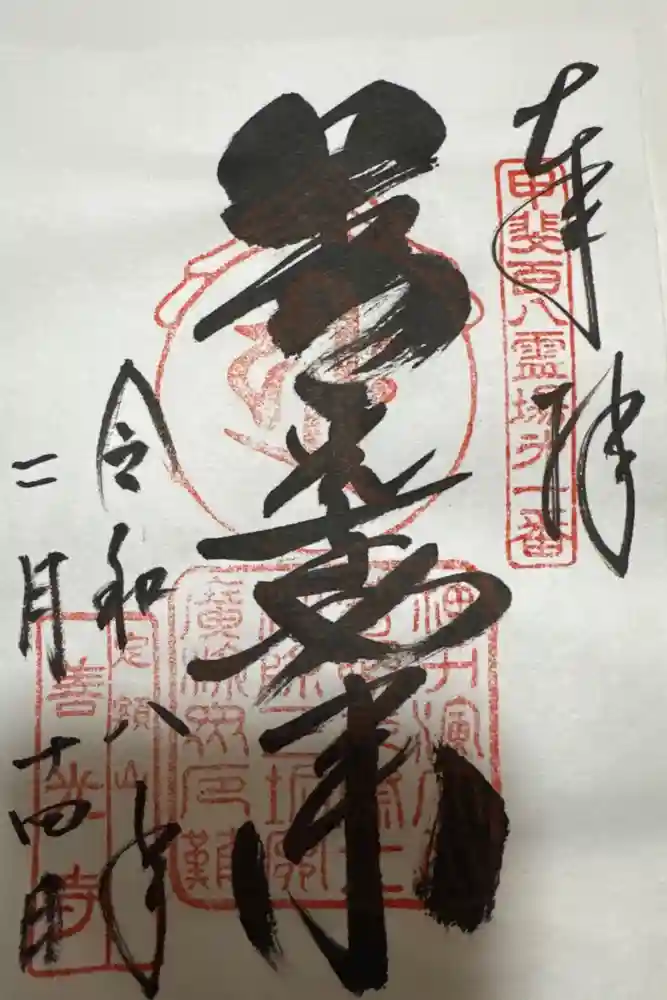 奉拝
甲斐百八霊場第一番
善光寺如来
令和八年
二月十四日
定額山
善光寺